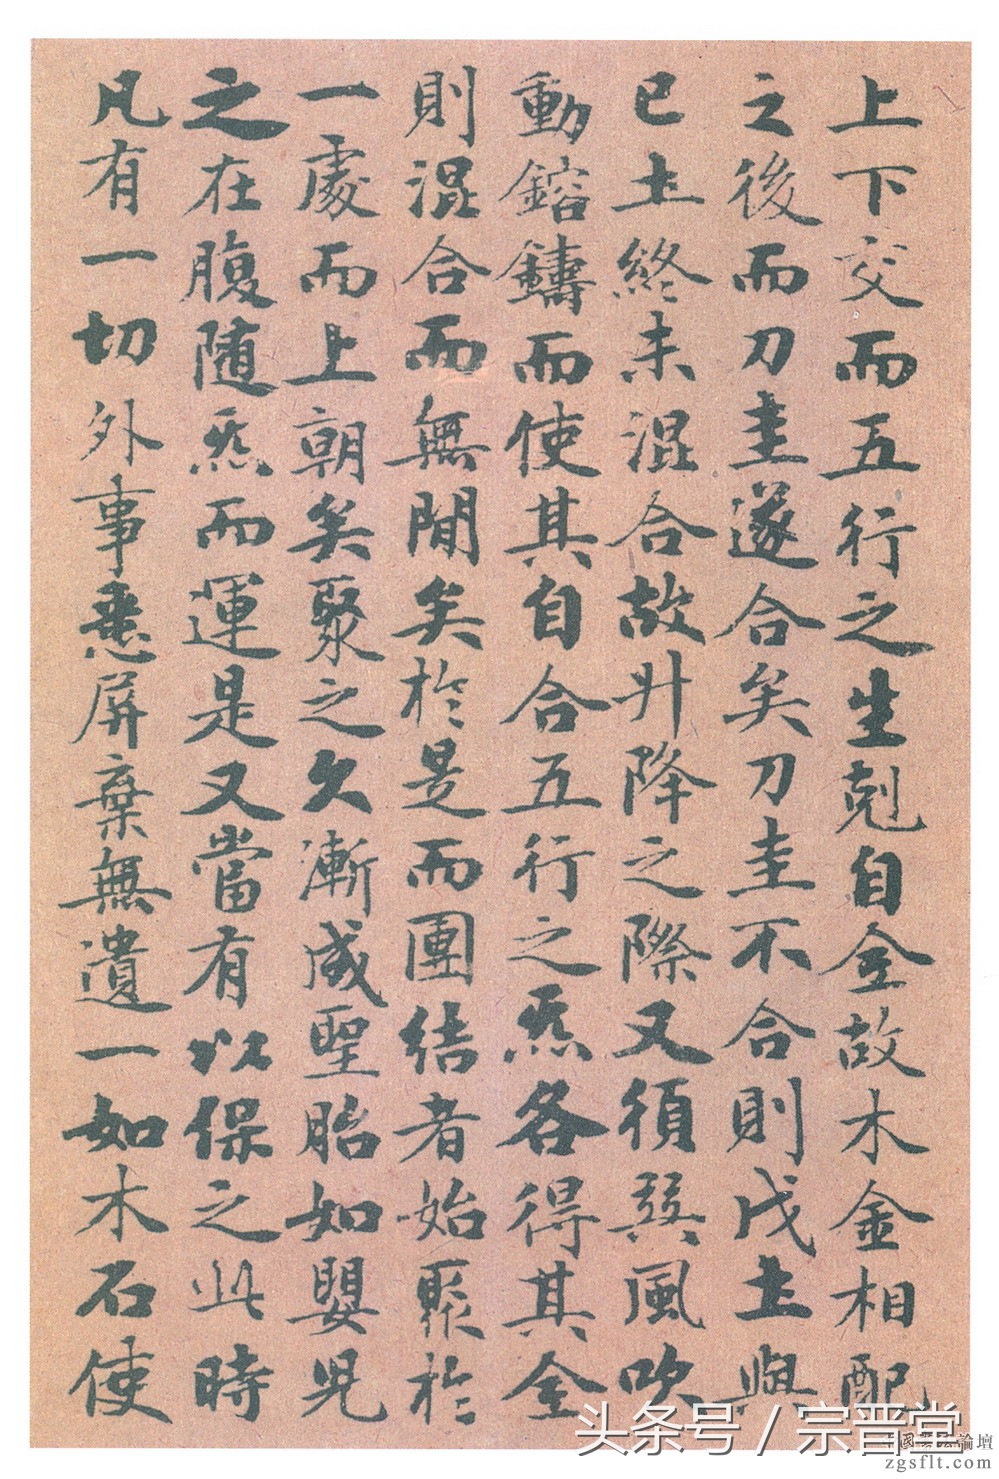 上下交而五行之生剋自全故木金相配
之後而刀圭遂合矣刀圭不合則戊土與
已土終未混合故升降之際又須巽風吹
動鎔鑄而使其自合五行之炁各得其全
則混合而無閒矣於是而團結者始聚於
一處而上朝矣聚之久漸成聖胎如嬰兒
之在腹随炁而運是又當有以保之此時
凡有一切外事悉屏棄無遺一如木石使
头条号 / 宗晋堂
國 論壇
zgsflt.com